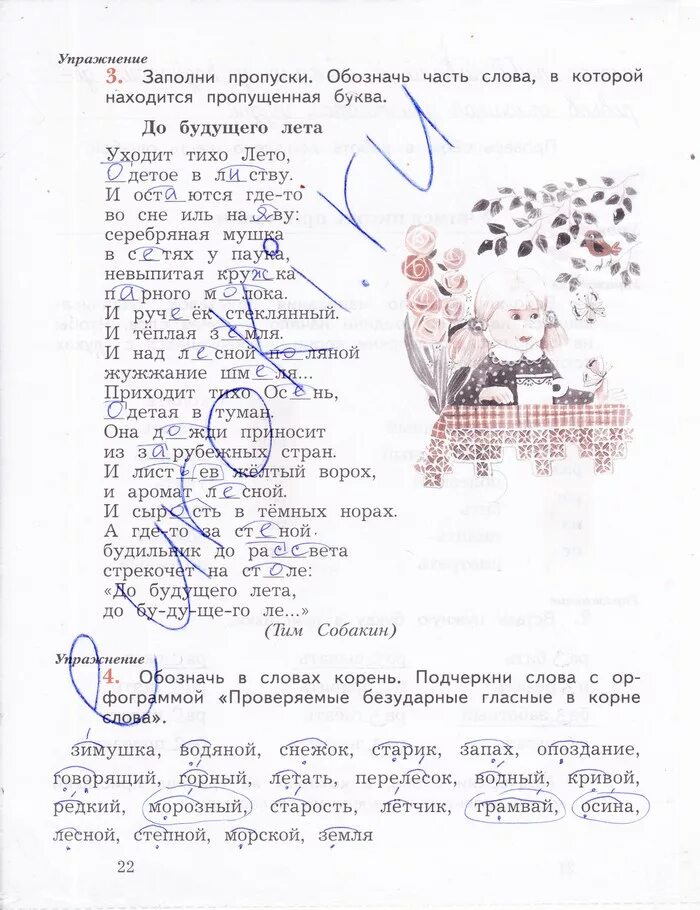 Упражнение
3. Заполни пропуски. Обозначь часть слова, в которой
находится пропущенная буква.
До будущего лета
Уходит тихо Лето,
Одетое в листву.
И остаются где-то
во сне иль наяву:
серебряная мушка
в сетях у паука,
невыпитая кружка
парного молока.
И ручеёк стеклянный.
И тёплая земля.
И над лесной поляной
жужжание шмеля...
Приходит тихо Осень,
Одетая в туман.
Она дожди приносит
из зарубежных стран.
И листьев жёлтый ворох,
и аромат лесной.
И сырость в тёмных норах.
А где-то за стеной
будильник до рассвета
стрекочет на столе:
«До будущего лета,
до бу-ду-ще-го ле...»
(Тим Собакин)
Упражнение
4. Обозначь в словах корень. Подчеркни слова с ор-
фограммой «Проверяемые безударные гласные в корне
слова».
зимушка, водяной, снежок, старик, запах, опоздание,
говорящий, горный, летать, перелесок, водный, кривой,
редкий, морозный, старость, лётчик, трамвай, осина,
лесной, степной, морской, земля
22